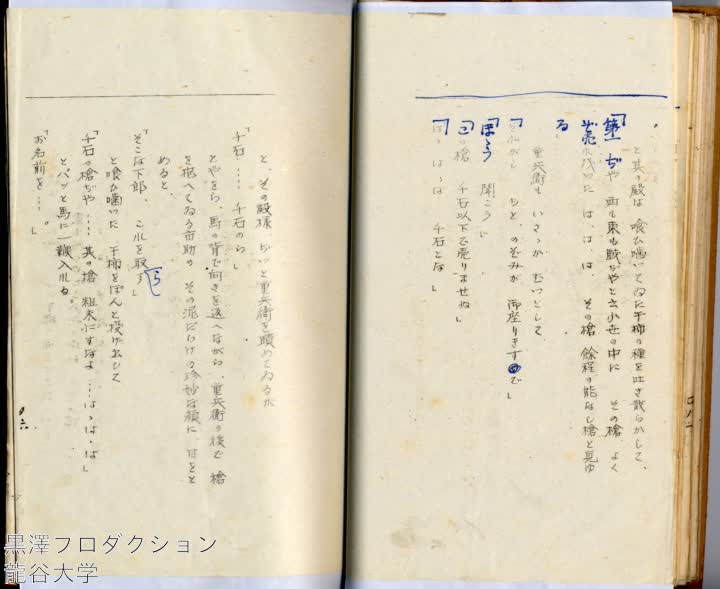 と其の殿は 喰ひ噛いてゐた干柿の種を吐き散らかして、
「第一ぢや 西も東も戦ぢやと云ふ世の中に その槍 よく
ぞ売れ残いた は、は、は、その槍 餘程の能なし槍と見ゆ
る」
重兵衛も いさゝか むつとして
「それがし ちと、のぞみが 御座りますので」
「ほう 聞こう」
「この槍 千石以下で売りませぬ」
「はゝはゝは 千石とな」
と、その殿様 ぢいと重兵衛を眺めてゐるが
「千石……千石のう」
とやをら、馬の背で向きを迭へながら、重兵衛の後で 槍
を抱へてゐる市助の その泥だらけの珍妙な顔に 目をと
めると、
「そこな下郎、これを取らす」
と喰ひ噛いた 干柿をぽんと投げ出して
「千石の槍ぢや……其の槍 粗末にすなよ……はゝはゝは」
とパッと馬に一鞭入れる。
「お名前を……」
黒澤プロダクション
龍谷大学